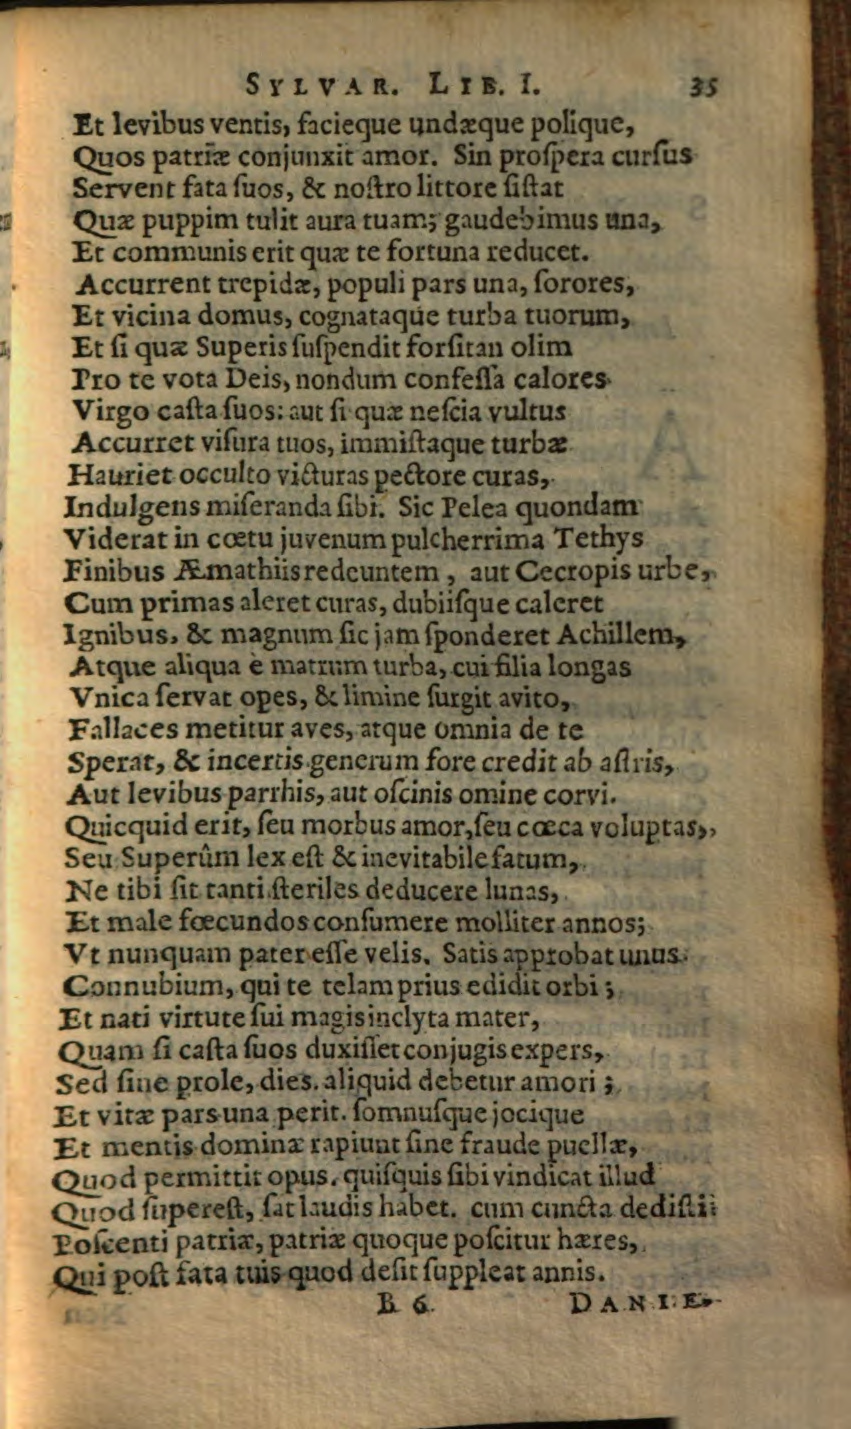 SYLVAR. LIB. I. 35
Et levibus ventis, facieque undæque polique,
Quos patriæ conjunxit amor. Sin proſpera curſus
Servent fata ſuos, & noſtro littore ſiſtat
Quæ puppim tulit aura tuam; gaudebimus una,
Et communis erit quæ te fortuna reducet.
Accurrent trepidæ, populi pars una, ſorores,
Et vicina domus, cognataque turba tuorum,
Et ſi quæ Superis ſuſpendit forſitan olim
Pro te vota Deis, nondum confeſſa calores
Virgo caſta ſuos: aut ſi quæ neſcia vultus
Accurret viſura tuos, immiſtaque turbæ
Hauriet occulto victuras pectore curas,
Indulgens miſeranda ſibi. Sic Pelea quondam
Viderat in cœtu juvenum pulcherrima Tethys
Finibus Æmathiis redeuntem, aut Cecropis urbe,
Cum primas aleret curas, dubiiſque caleret
Ignibus, & magnum ſic jam ſponderet Achillem,
Atque aliqua è matrum turba, cui filia longas
Vnica ſervat opes, & limine ſurgit avito,
Fallaces metitur aves, atque omnia de te
Sperat, & incertis generum fore credit ab aſtris,
Aut levibus parrhis, aut oſcinis omine corvi.
Quicquid erit, ſeu morbus amor, ſeu cœca voluptas,,
Seu Superûm lex eſt & inevitabile fatum,
Ne tibi ſit tanti ſteriles deducere lunas,
Et male fœcundos conſumere molliter annos;
Vt nunquam pater eſſe velis. Satis approbat unus
Connubium, qui te telam prius edidit orbi;
Et nati virtute ſui magis inclyta mater,
Quam ſi caſta ſuos duxiſſet conjugis expers,
Sed ſine prole, dies. aliquid debetur amori;
Et vitæ pars una perit. ſomnuſque jocique
Et mentis dominæ rapiunt ſine fraude puellæ,
Quod permittit opus. quiſquis ſibi vindicat illud
Quod ſupereſt, ſat laudis habet. cum cuncta dediſti
Poſcenti patriæ, patriæ quoque poſcitur hæres,
Qui poſt fata tuis quod deſit ſuppleat annis.
B 6. DANIE-